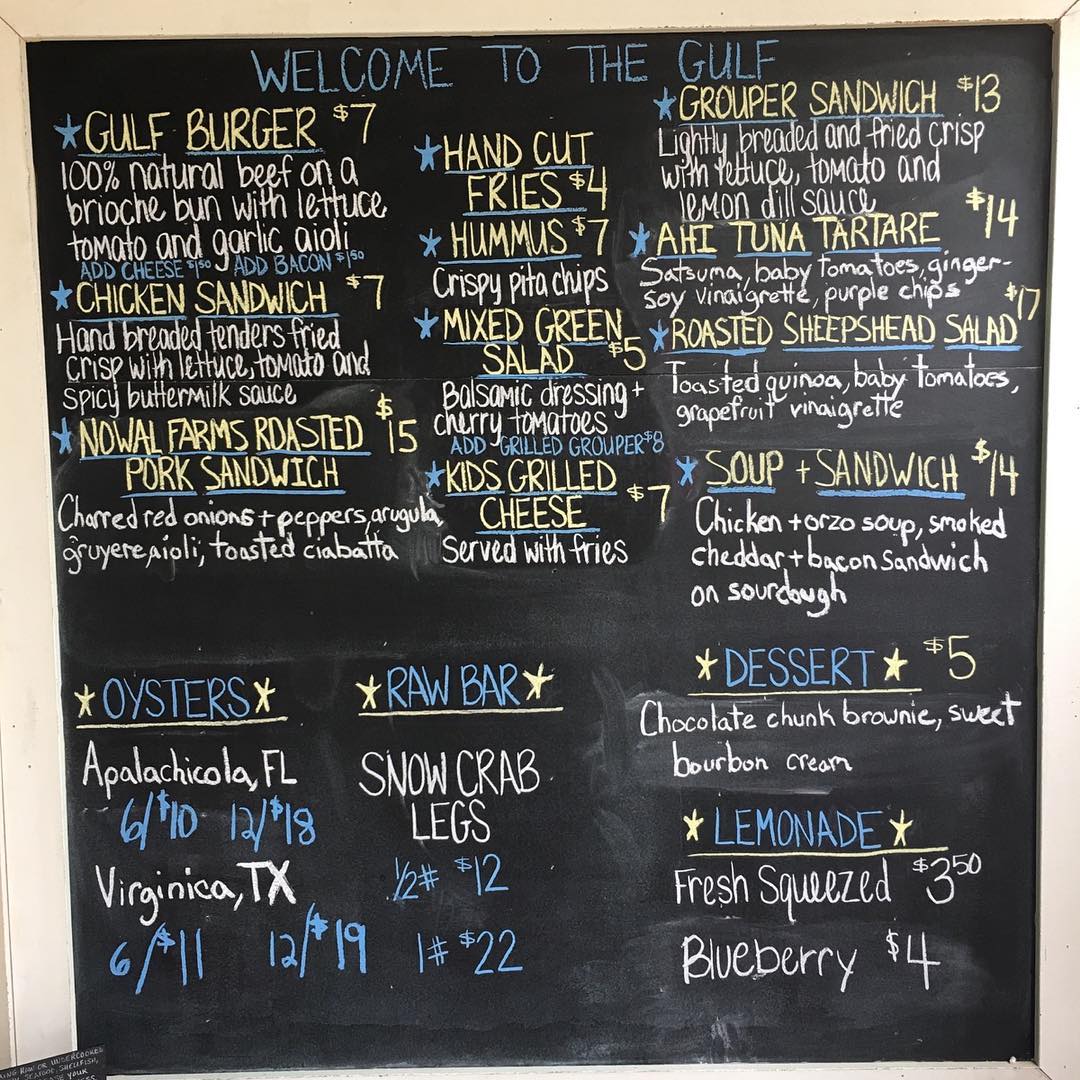 WELCOME TO THE GULF
★GULF BURGER $7
100% natural beef on a
brioche bun with lettuce
tomato and garlic aioli
ADD CHEESE $1.50 ADD BACON $1.50
★CHICKEN SANDWICH $7
Hand breaded tenders fried
crisp with lettuce, tomato and
spicy buttermilk sauce
★NOWAL FARMS ROASTED $15
PORK SANDWICH
Charred red onions + peppers, arugula,
gruyere aioli, toasted ciabatta
★HAND CUT
FRIES $4
★HUMMUS $7
Crispy pita chips
★MIXED GREEN
SALAD $5
Balsamic dressing +
cherry tomatoes
ADD GRILLED GROUPER $8
★KIDS GRILLED
CHEESE $7
Served with fries
★GROUPER SANDWICH $13
Lightly breaded and fried crisp
with lettuce, tomato and
lemon dill sauce
★AHI TUNA TARTARE $14
Satsuma, baby tomatoes, ginger-
soy vinaigrette, purple chips
★ROASTED SHEEPSHEAD SALAD $17
Toasted quinoa, baby tomatoes,
grapefruit vinaigrette
★SOUP + SANDWICH $14
Chicken + orzo soup, smoked
cheddar + bacon sandwich
on sourdough
★OYSTERS★
Apalachicola, FL
6/$10 12/$18
Virginica, TX
6/$11 12/$19
★RAW BAR★
SNOW CRAB
LEGS
1/2# $12
1# $22
★DESSERT★ $5
Chocolate chunk brownie, sweet
bourbon cream
★LEMONADE★
Fresh Squeezed $3.50
Blueberry $4
RAW OR UNDERCOOKED
SEAFOOD, SHELLFISH,
YOUR